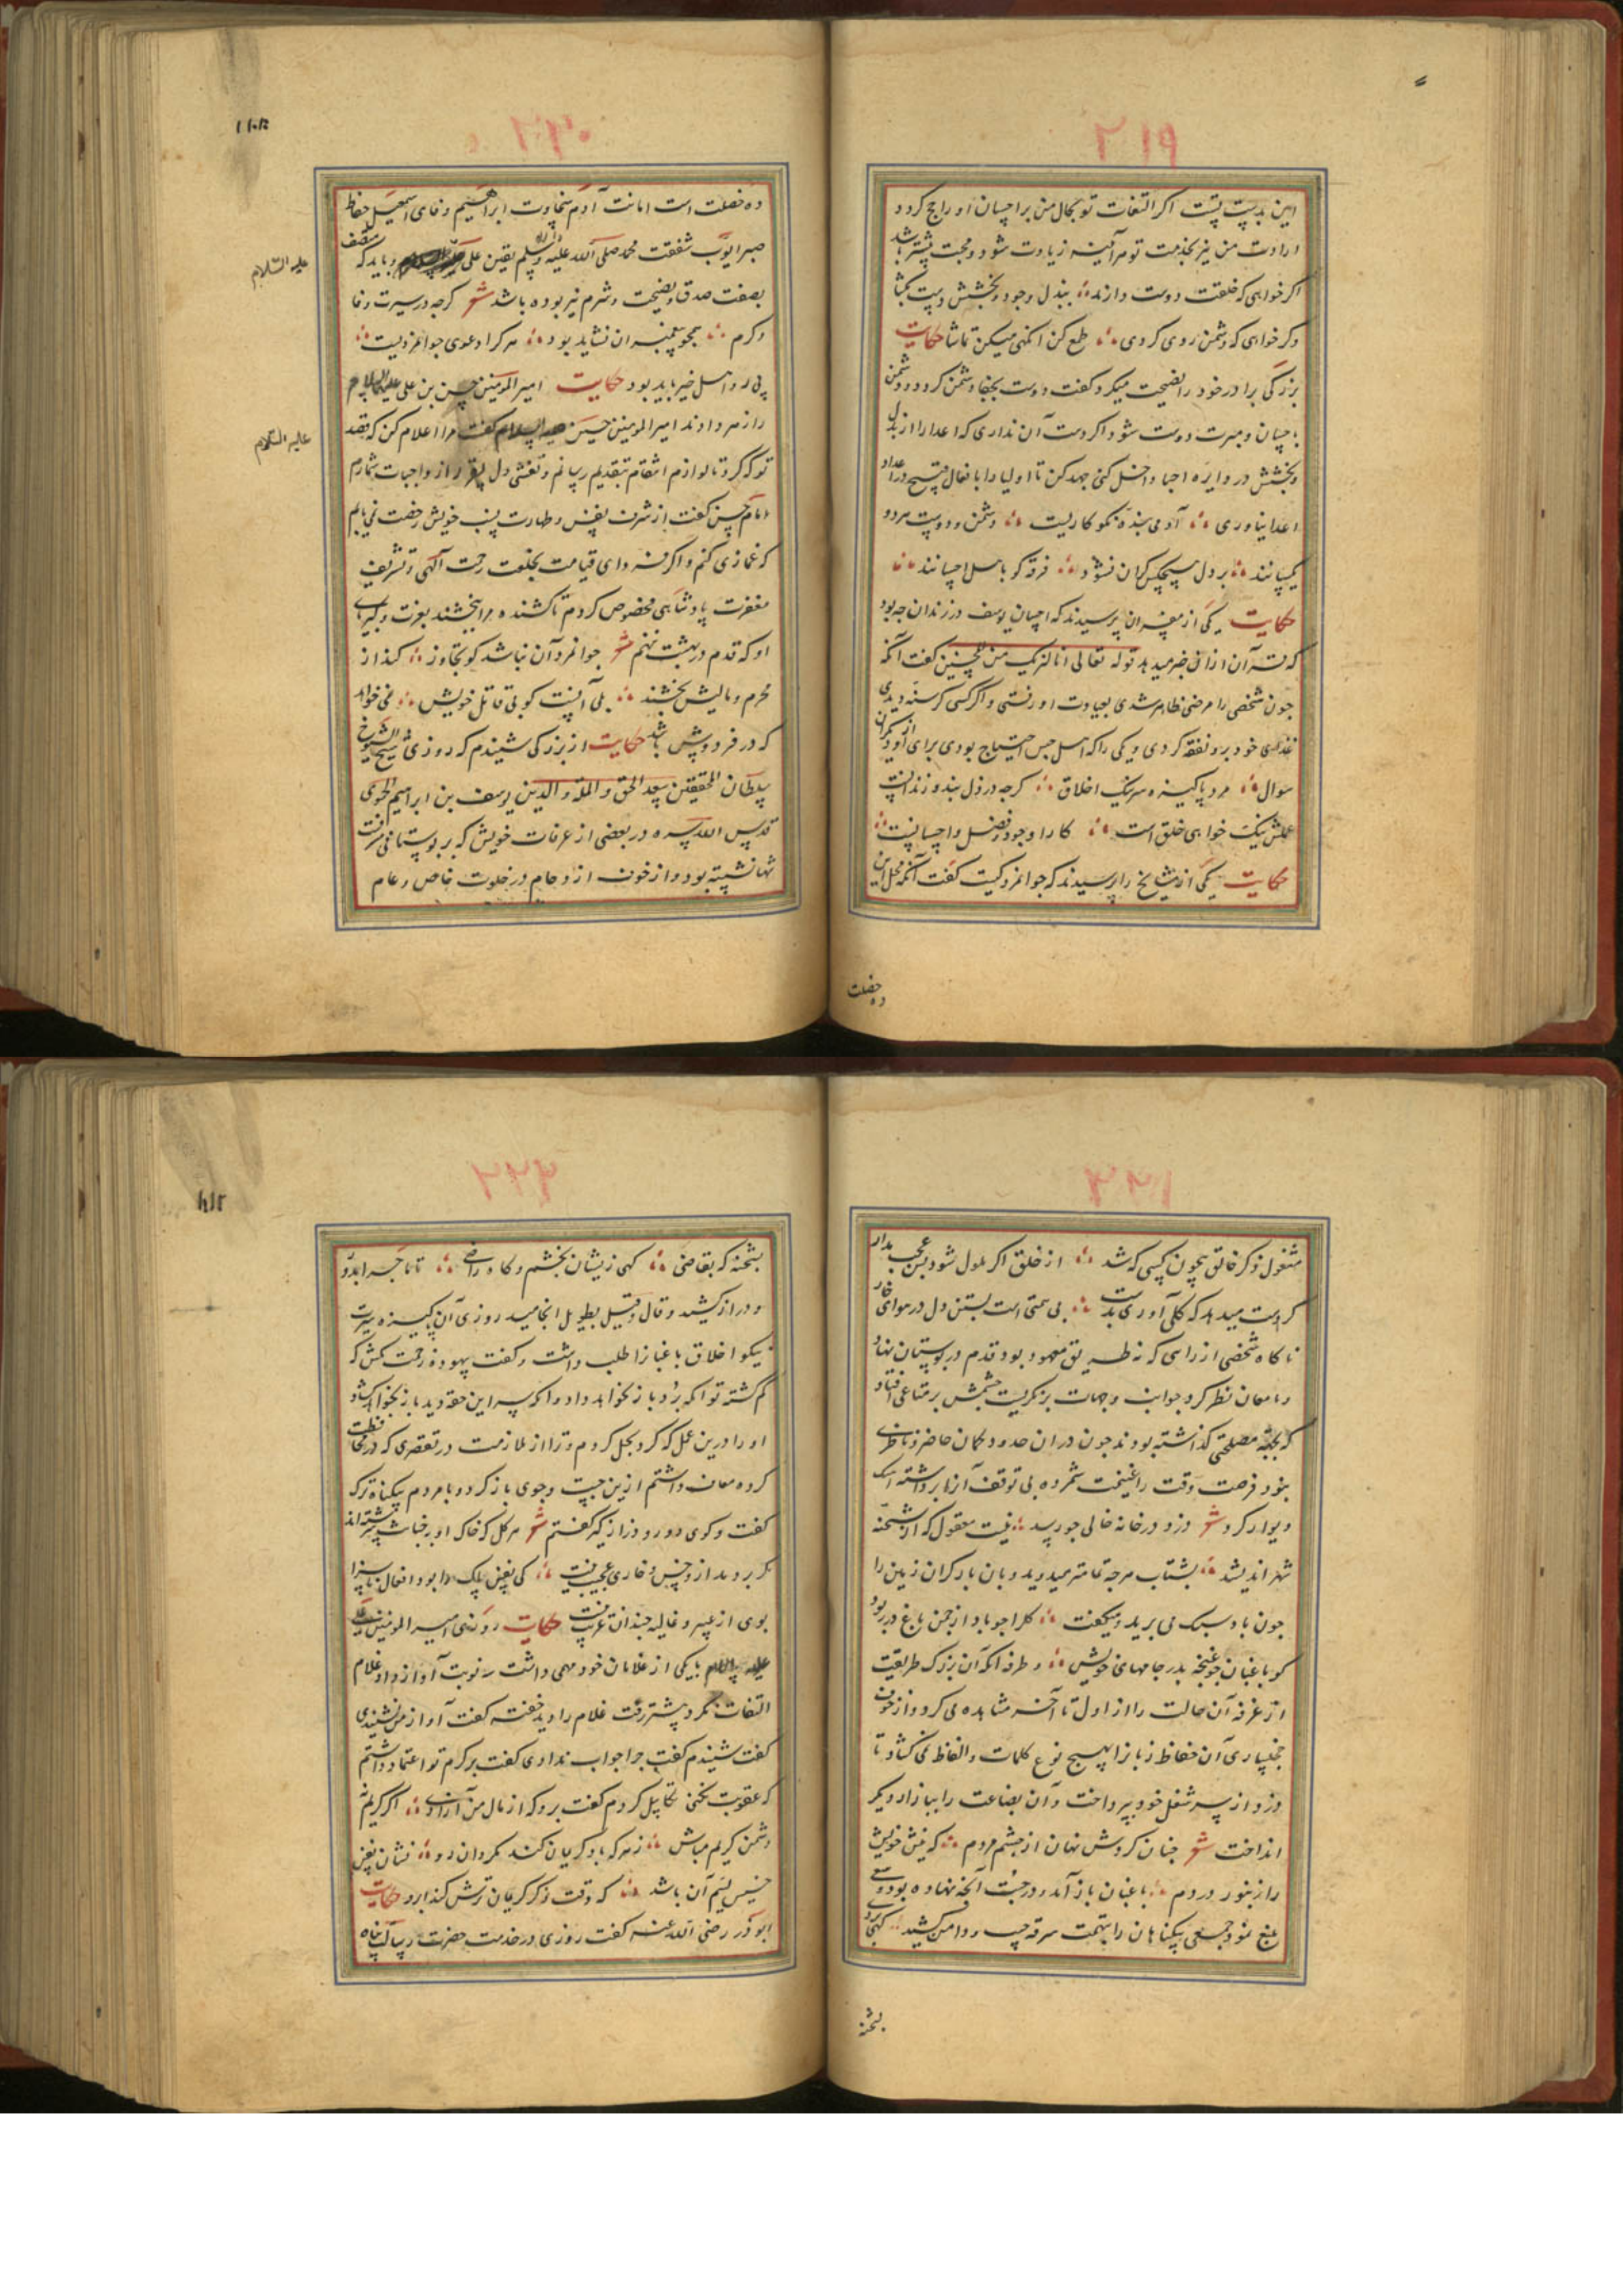 ۲۱۹
این بدیت پشت اگر التفات تو بحال من بر احسان او راجح کردد
ارادت من نیز بخدمت تو هر آینه زیادت شود و محبت بیشتر باشد
اگر خواهی که خلقت دوست دارند ببذل وجود و بخشش دست بکشا
وگر خواهی که دشمن روی کردی طمع کن اندکی میکن تماشا حکایت
بزرگی برادر خود را نصیحت میکرد و گفت دوست بجفا دشمن کردد و دشمن
باحسان و مبرت دوست شود اگر دست آن نداری که اعدا را از بذل
و بخشش در دایره احبا داخل کنی جهد کن تا اولیا را بافعال قبیح در اعداد
اعدا نیاوری آدمی بنده نکوکاریست دشمن و دوست هر دو
یکسانند بر دل هیچکس کران نشود فرقه کو باهل احسانند
حکایت یکی از مفسران پرسیدند که احسان یوسف در زندان چه بود
که قرآن از آن خبر میدهد قوله تعالی انا لنریک من المحسنین گفت آنکه
چون شخصی را مرضی ظاهر شدی بعیادت او رفتی و اگر کسی کرسنه دیدی
غذای خود برو نفقه کردی و یکی را که اهل حبس احتیاج بودی برای او از دیگران
سوال مرد پاکیزه سر نیک اخلاق کرچه در ذل بند و زندانست
عملش نیکخواهی خلق است کار او جود و فضل و احسانست
حکایت یکی از مشایخ را پرسیدند که جوانمرد کیست گفت آنکه محل این
ده خصلت
۲۲۰
ده خصلت است امانت آدم سخاوت ابراهیم وفای اسمعیل حفاظ
صبر ایوب شفقت محمد صلی الله علیه و آله و سلم یقین علی و باید که متصف
علیه السلام
بصفت صدق و نصیحت و شرم نیز بوده باشد شعر کرچه در سیرت وفا
و کرم همچو پیغمبران نشاید بود هر کرا دعوی جوانمردیست
پی رو اهل خیر باید بود حکایت امیر المومنین حسن بن علی علیهما السلام
را زهر دادند امیر المومنین حسین علیه السلام گفت مرا اعلام کن که قصد
علیه السلام
تو که کرد تا لوازم انتقام بتقدیم رسانم و تشفی دل از واجبات شمارم
امام حسن گفت از شرف نفس و طهارت نسب خویش رخصت نمی یابم
که غمازی کنم و اگر فردای قیامت بخلعت رحمت الهی و تشریف
مغفرت پادشاهی مخصوص کردم تا کشنده مرا نبخشند بعزت و کبریای
او که قدم در بهشت ننهم شعر جوانمرد آن نباشد کو تجاوز کند از
مجرم و مالیش بخشند بلی آنست کو بی قاتل خویش نمی خواهد
که در فردوس باشد حکایت از بزرگی شنیدم که روزی شیخ الشیوخ
سلطان المحققین سعد الحق و المله و الدین یوسف بن ابراهیم الحموی
قدس الله سره در بعضی از غرفات خویش که بر بوستانی مشرفت
تنها نشسته بود و از خوف ازدحام در خلوت خاص و عام
۲۲۱
مشغول ذکر خالق بیچون کسی که شد از خلق اگر ملول شود بس عجب مدار
کر دست میدهد که کلی آوری بدست بی همتی است بستن دل در هوای خار
ناگاه شخصی از راهی که نه طریق معهود بود قدم در بوستان نهاد
و بامعان نظر کرد جوانب و جهات بنگریست چشمش بر متاعی افتاد
که بجهة مصلحتی گذاشته بودند چون در آن حدود مکان حاضر و ناظری
نبود فرصت وقت را غنیمت شمرده بی توقف آنرا برداشته آهنک
دیوار کرد شعر دزد در خانه خالی چو رسد نیست معقول که از شحنه
شهر اندیشد بشتاب هر چه تمامتر میدوید و بان بار کران زمین را
چون باد سبک می برید و میگفت کلرا چو باد از چمن باغ در ربود
کو باغبان چو غنچه بدر جامهای خویش و طرفه آنکه آن بزرگ طریقت
از غرفه آن حالت را از اول تا آخر مشاهده می کرد و از خوف
آن حفاظ زبانرا بهیچ نوع کلمات و الفاظ نمی کشاد تا
دزد از سر شغل خود بپرداخت و آن بضاعت را ببازار دیگر
انداخت شعر چنان کردش نهان از چشم مردم که نیش خویش
را زنبور در دم باغبان باز آمد و در جست آنچه نهاده بود وسعی
بلیغ نمود جمعی بیگناهان را بتهمت سرقه جیب و دامن کشید کهی بردی
بشحنه
۲۲۲
بشحنه که بقاضی کهی زیشان بخشم و گاه راضی تا ماجرا بدو
و دراز کشید و قال و قیل بطویل انجامید روزی آن پاکیزه سیرت
نیکو اخلاق باغبانرا طلب داشت و گفت بیهوده زحمت مکش که
گم گشته تو آنکه برد باز نخواهد داد و آنکه سر این حقه دید باز نخواهد کشاد
او را درین عمل که کرد بحل کردم و ترا از ملامت در تقصیری که در محافظت
کرده معاف داشتم ازین جست و جوی باز کرد و با مردم بیگناه ترک
گفت و گوی دور و دراز گیر گفتم شعر هر گل که خاک او بخباثت سرشته اند
گر بر دمد ازو خس و خاری عجیب نیست کی نفس پاک را بود افعال ناسزا
بوی از عبیر و غالیه چندان غریب نیست حکایت روزی امیر المومنین علی
علیه السلام با یکی از غلامان خود مهمی داشت سه نوبت آواز داد غلام
التفات نکرد پیشتر رفت غلام را دید خفته گفت آواز من نشنیدی
گفت شنیدم گفت چرا جواب ندادی گفت بر کرم تو اعتماد داشتم
که عقوبت نکنی تکاسل کردم گفت برو که از مال من آزادی اگر کریم نه
دشمن کریم مباش زهر که با دکریان کند بکردان رو نشان نفس
خسیس لئیم آن باشد که وقت ذکر کریمان ترش کند ابرو حکایت
ابوذر رضی الله عنه گفت روزی در خدمت حضرت رسالت پناه